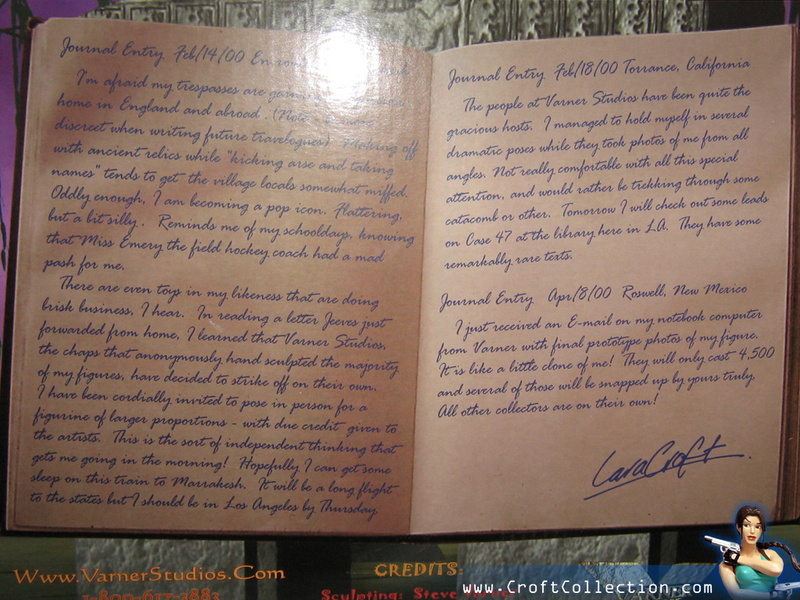 Journal Entry Feb/14/00
I'm afraid my trespasses are
home in England and abroad. (Note
discreet when writing future travelogues) Making off
with ancient relics while "kicking arse and taking
names" tends to get the village locals somewhat miffed.
Oddly enough, I am becoming a pop icon. Flattering,
but a bit silly. Reminds me of my schooldays, knowing
that Miss Emery the field hockey coach had a mad
pash for me.
There are even toys in my likeness that are doing
brisk business, I hear. In reading a letter Jeeves just
forwarded from home, I learned that Varner Studios,
the chaps that anonymously hand sculpted the majority
of my figures, have decided to strike off on their own.
I have been cordially invited to pose in person for a
figurine of larger proportions - with due credit given to
the artists. This is the sort of independent thinking that
gets me going in the morning! Hopefully I can get some
sleep on this train to Marrakesh. It will be a long flight
to the states but I should be in Los Angeles by Thursday.
Journal Entry Feb/18/00 Torrance, California
The people at Varner Studios have been quite the
gracious hosts. I managed to hold myself in several
dramatic poses while they took photos of me from all
angles. Not really comfortable with all this special
attention, and would rather be trekking through some
catacomb or other. Tomorrow I will check out some leads
on Case 47 at the library here in L.A. They have some
remarkably rare texts.
Journal Entry Apr/8/00 Roswell, New Mexico
I just received an E-mail on my notebook computer
from Varner with final prototype photos of my figure.
It is like a little clone of me! They will only cast 4,500
and several of those will be snapped up by yours truly.
All other collectors are on their own!
Lara Croft
www.VarnerStudios.Com
CREDITS:
Sculpting: Steve
www.CroftCollection.com